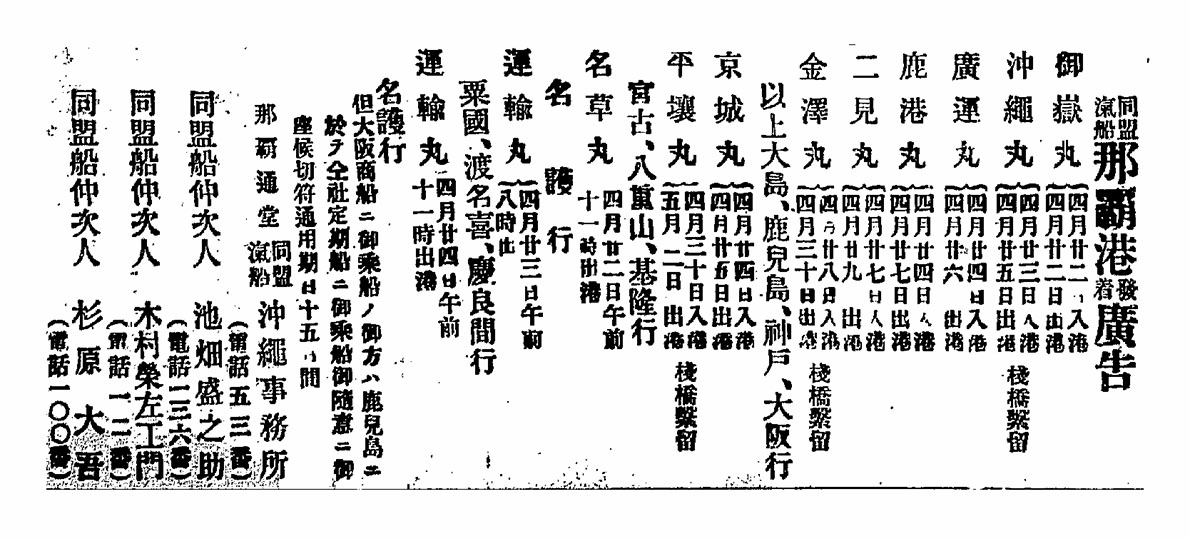 同盟汽船那覇港発着廣告
御嶽丸
四月廿二日入港
四月廿二日出港
沖繩丸
四月廿三日入港
四月廿五日出港
棧橋繫留
廣運丸
四月廿四日入港
四月廿六日出港
鹿港丸
四月廿四日入港
四月廿七日出港
二見丸
四月廿七日入港
四月廿九日出港
金澤丸
四月廿八日入港
四月三十日出港
棧橋繫留
以上大島、鹿兒島、神戶、大阪行
京城丸
四月廿四日入港
四月廿五日出港
平壤丸
四月三十日入港
五月二日出港
棧橋繫留
宮古、八重山、基隆行
名草丸
四月廿二日午前
十一時出港
名護行
運輸丸
四月廿三日午前
八時出
粟國、渡名喜、慶良間行
運輸丸
四月廿四日午前
十一時出港
名護行
但大阪商船ニ御乘船ノ御方ハ鹿兒島ニ
於テ仝社定期船ニ御乘船御隨意ニ御
座候切符通用期日十五日間
那覇通堂 同盟汽船 沖繩事務所
(電話五三番)
同盟船仲次人 池畑盛之助
(電話一三六番)
同盟船仲次人 木村榮左工門
(電話一二番)
同盟船仲次人 杉原大吾
(電話一〇〇番)